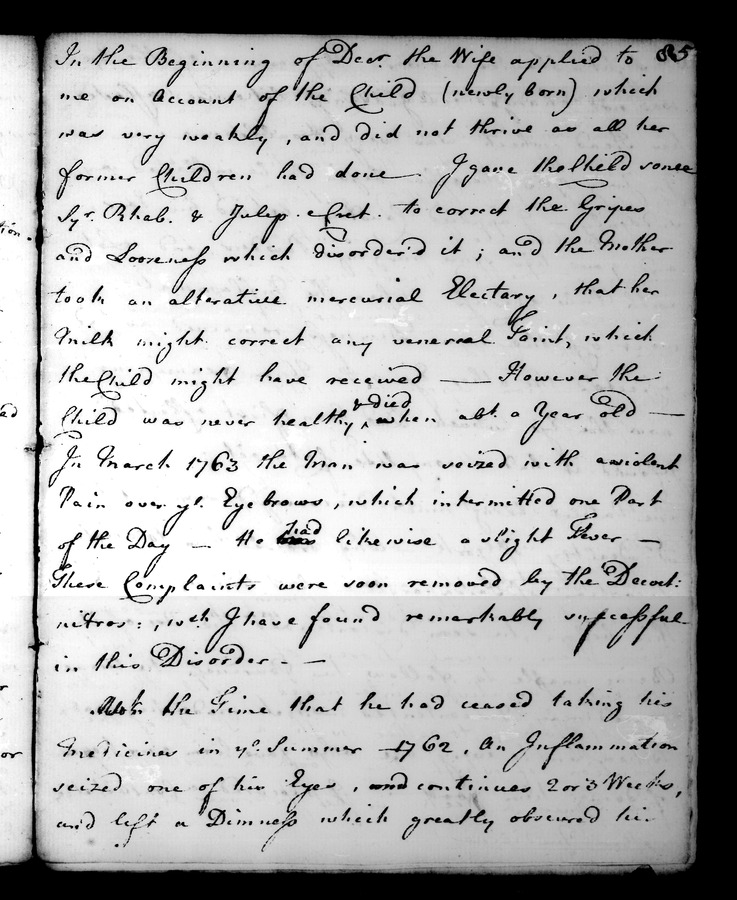 85
In the Beginning of Decr. the Wife applied to
me on Account of the Child (newly born) which
was very weakly, and did not thrive as all her
former Children had done. I gave the Child some
Syr. Rhab. & Julep. Cret. to correct the Gripes
and Looseness which disorder'd it; and the Mother
took an alterative mercurial Electary, that her
Milk might correct any venereal Taint, which
the Child might have received — However the
Child was never healthy, & died when abt. a Year old —
In March 1763 the Man was seized with a violent
Pain over ye. Eyebrows, which intermitted one Part
of the Day — He had likewise a slight Fever —
These Complaints were soon removed by the Decoct:
nitros:, wch. I have found remarkably successful
in this Disorder. —
the Time that he had ceased taking his
Medicines in ye. Summer 1762, An Inflammation
seized one of his Eyes, and continues 2 or 3 Weeks,
and left a Dimness which greatly obscured his